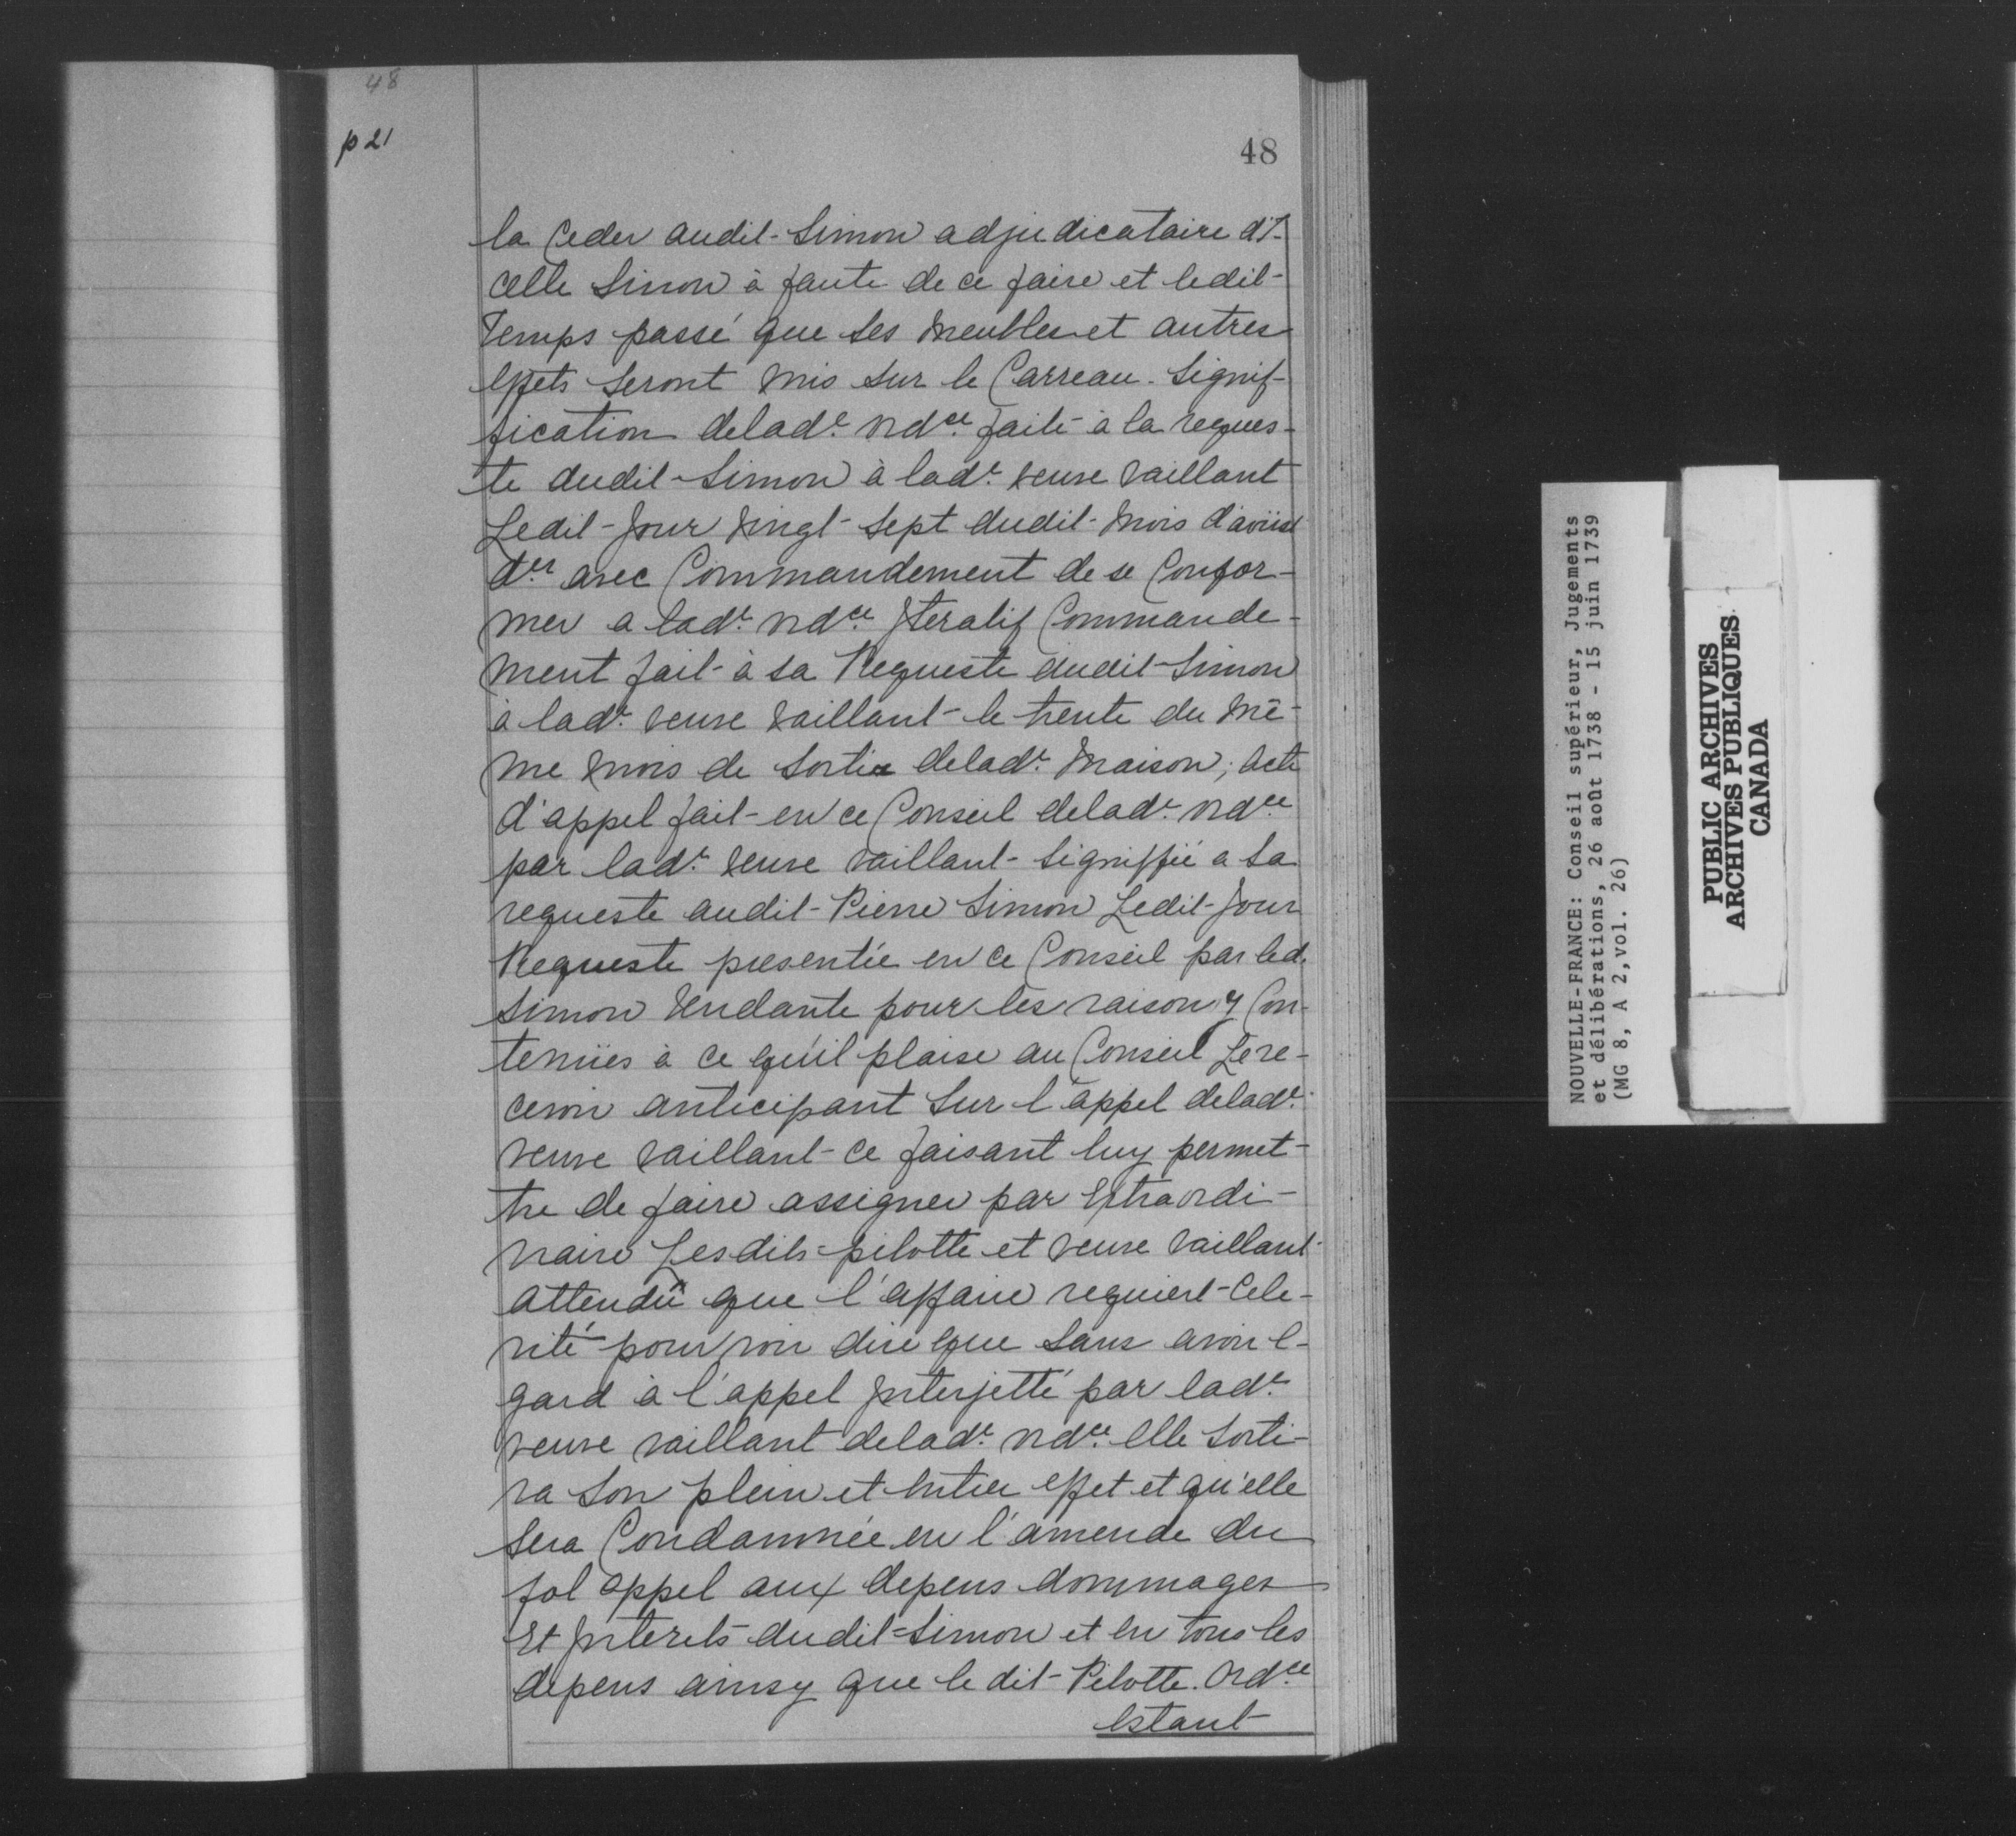 48
p 21
48
la Ceder audit Simon adjudicataire d'I-
celle Sinon à faute de ce faire et ledit
Temps passé que ses meubles et autres
effets seront mis sur le Carreau. Signif-
fication delade. ordce. faite à la reques-
te dudit Simon à lade. veuve Vaillant
Ledit Jour Vingt Sept dudit mois d'aoüst
der. avec Commandement de se Confor-
mer a lade. ordce. Iteratif Commande-
ment fait à sa Requeste dudit Simon
à lade. veuve Vaillant le trente du mê-
me mois de sortir delade. maison; acte
d'appel fait en ce Conseil delade. ordce
par lade. veuve Vaillant signiffié a sa
requeste audit Pierre Simon Ledit Jour
Requeste presentée en ce Conseil par led.
Simon tendante pour les raison y Con-
tenües à ce qu'il plaise au Conseil Le re-
cevoir anticipant sur l'appel delade.
veuve Vaillant ce faisant luy permet-
tre de faire assigner par Extraordi-
naire Lesdits pilotte et veuve Vaillant
attendü que l'affaire requiert Cele-
rité pour voir dire que sans avoir e-
gard à l'appel Interjetté par lade.
veuve Vaillant delade. ordce. elle sorti-
ra son plein et entier effet et qu'elle
sera Condamnée en l'amende du
fol appel aux depens dommages
Et Interets dudit Simon et en tous les
depens ainsy que le dit Pilotte. Ordce
Estant
NOUVELLE-FRANCE: Conseil supérieur, Jugements
et délibérations, 26 août 1738 - 15 juin 1739
(MG 8, A 2,vol. 26)
PUBLIC ARCHIVES
ARCHIVES PUBLIQUES
CANADA